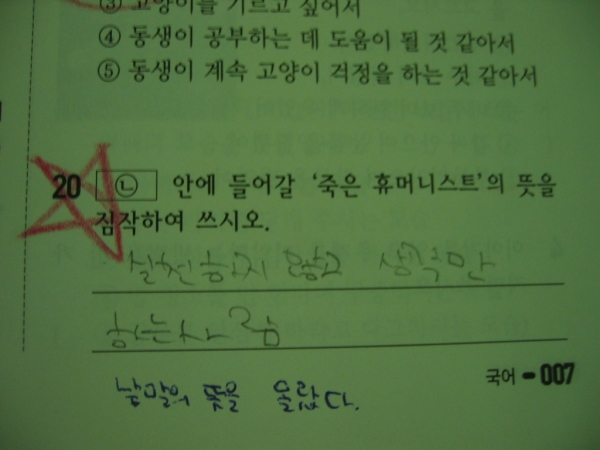 ③ 고양이를 기르고 싶어서
④ 동생이 공부하는 데 도움이 될 것 같아서
⑤ 동생이 계속 고양이 걱정을 하는 것 같아서
20 ㉡ 안에 들어갈 '죽은 휴머니스트'의 뜻을
짐작하여 쓰시오.
실천하지 않고 생각만
하는 사람
국어 - 007
낱말의 뜻을 몰랐다.